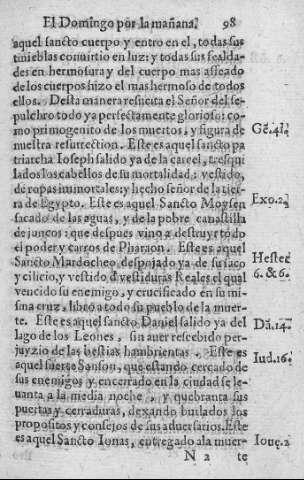 El Domingo por la mañana. 98
aquel sancto cuerpo y entro en el, todas sus
tinieblas conuirtio en luz: y todas sus fealda-
des en hermosura y del cuerpo mas afeado
de los cuerpos hizo el mas hermoso de todos
ellos. Desta manera resucita el Señor del se-
pulchro todo ya perfectamente glorioso: co-
mo primogenito de los muertos, y figura de
nuestra resurrection. Este es aquel sancto pa
triarcha Ioseph salido ya de la carcel, tresqui
lados los cabellos de su mortalidad: vestido,
de ropas immortales: y hecho señor de la tier-
ra de Egypto. Este es aquel Sancto Moysen
sacado de las aguas, y de la pobre canastilla
de juncos: que despues vino a destruyr todo
el poder y carros de Pharaon. Este es aquel
Sancto Mardocheo despojado ya de su saco
y cilicio, y vestido d vestiduras Reales el qual
vencido su enemigo, y crucificado en su mi-
sma cruz, libro a todo su pueblo de la muer-
te. Este es aquel sancto Daniel salido ya del
lago de los Leones, sin auer rescebido per-
juyzio de las bestias hambrientas. Este es
aquel fuerte Sanson, que estando cercado de
sus enemigos y encerrado en la ciudad se le-
uanta a la media noche, y quebranta sus
puertas y cerraduras, dexando burlados los
propositos y consejos de sus aduersarios. Este
es aquel Sancto Ionas, entregado a la muer-
N 2 te
Gē. 41.
Exo. 2.
Hester
6. & 6.
Dā. 14.
Iud. 16.
Ione. 2